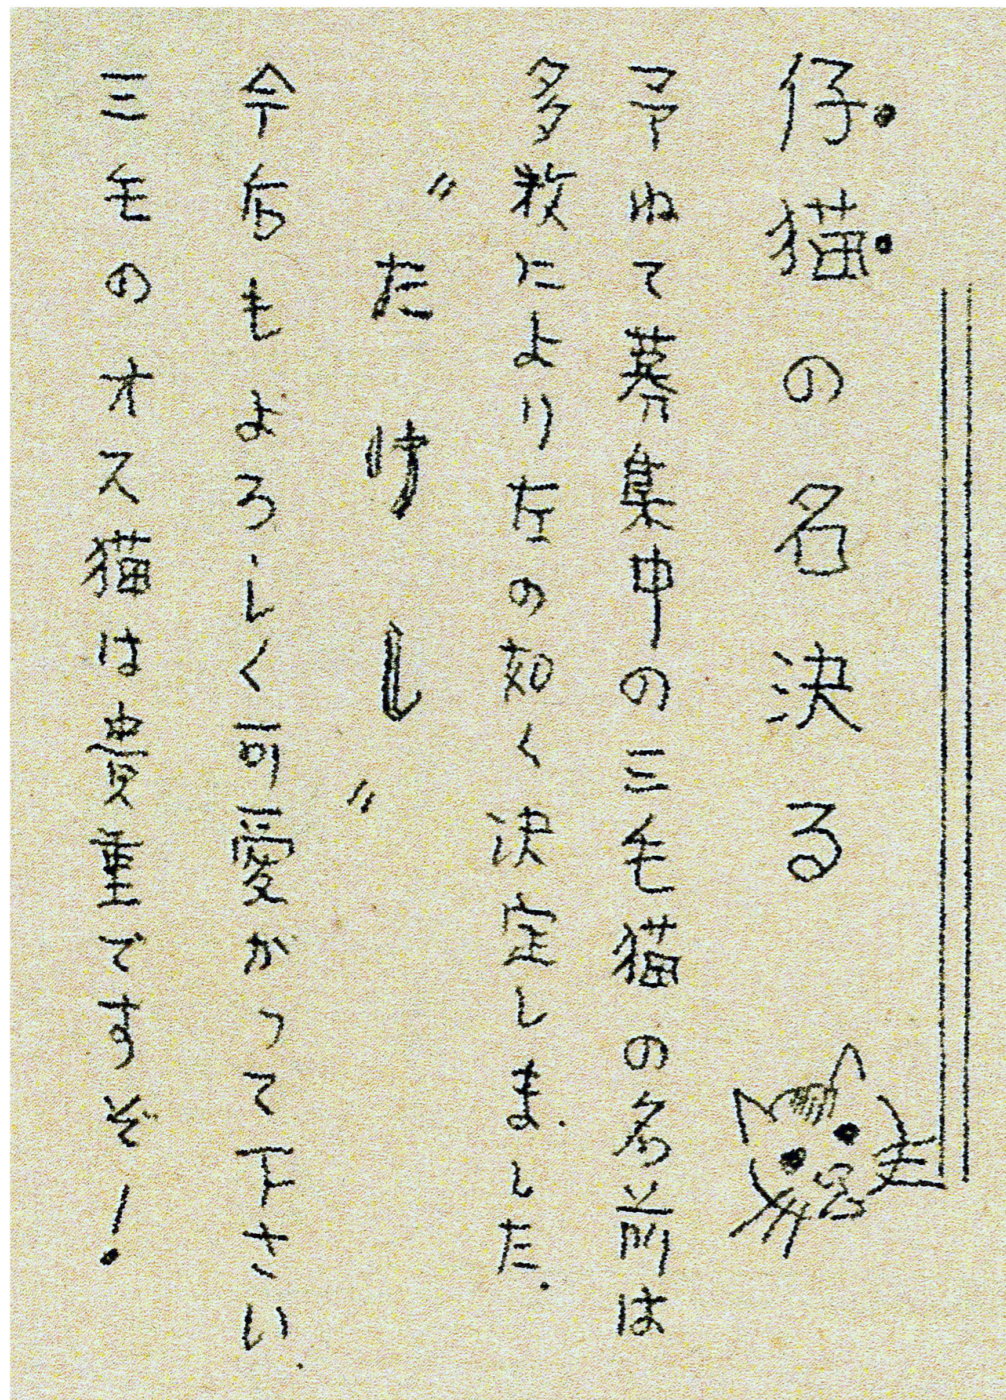 仔猫の名決る
予ねて募集中の三毛猫の名前は
多数により左の如く決定しました.
"たけし"
今后もよろしく可愛がって下さい.
三毛のオス猫は貴重ですぞ!